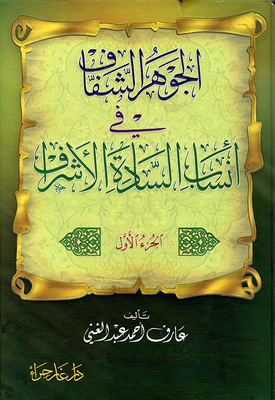 الجَوْهَرُ الشَّفَّافُ
فِي
أَنْسَابِ السَّادَةِ الأَشْرَافِ
الجُزْءُ الأَوَّلُ
تأليف
عارف أحمد عبد الغني
دار غار حراء